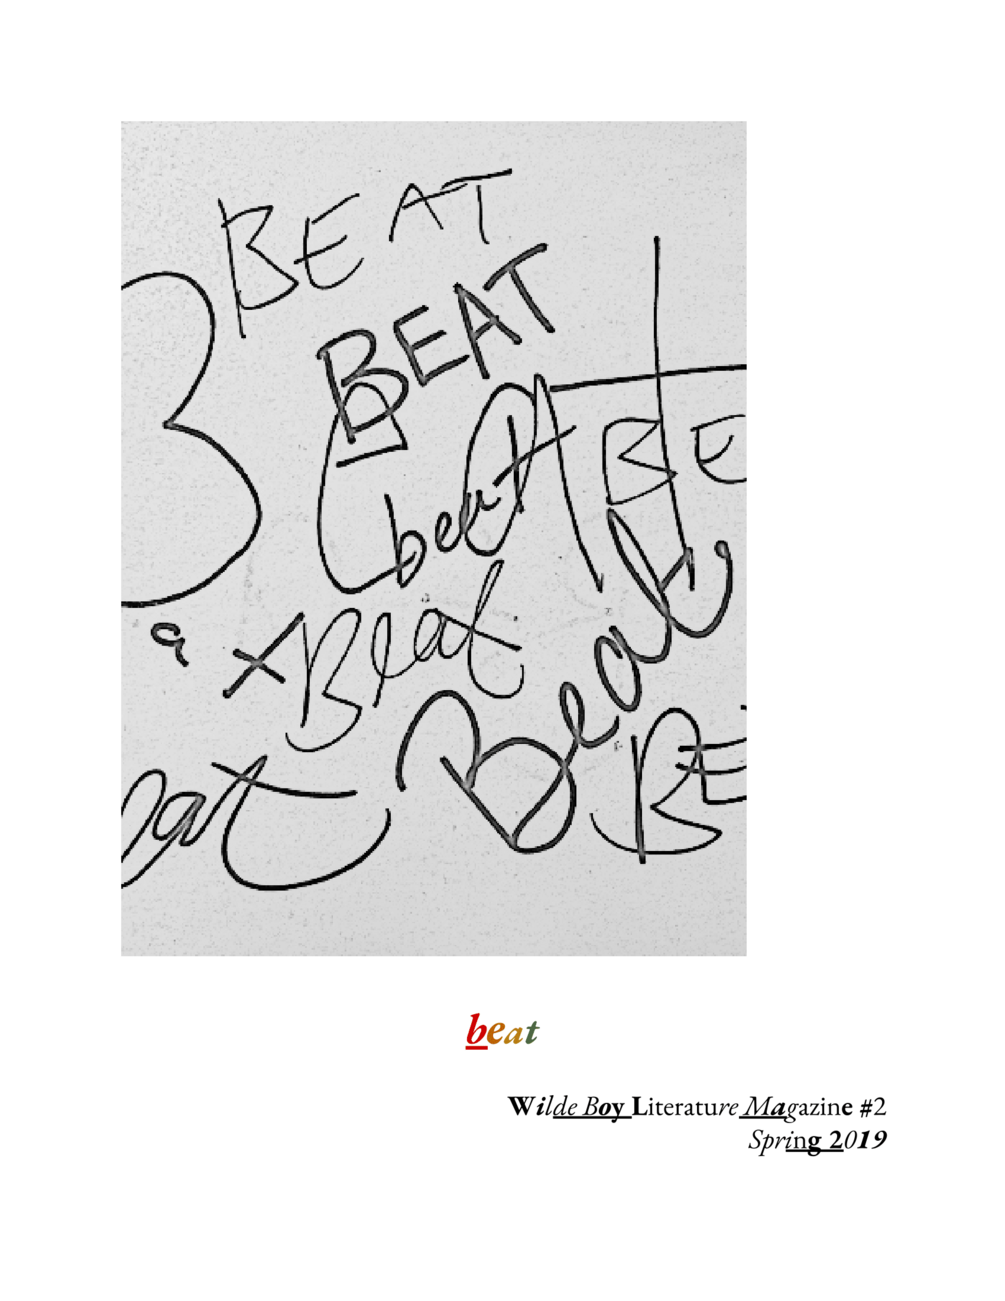 BEAT
BEAT
BE
beat
Beat
Beat
BE
beat
Wilde Boy Literature Magazine #2
Spring 2019